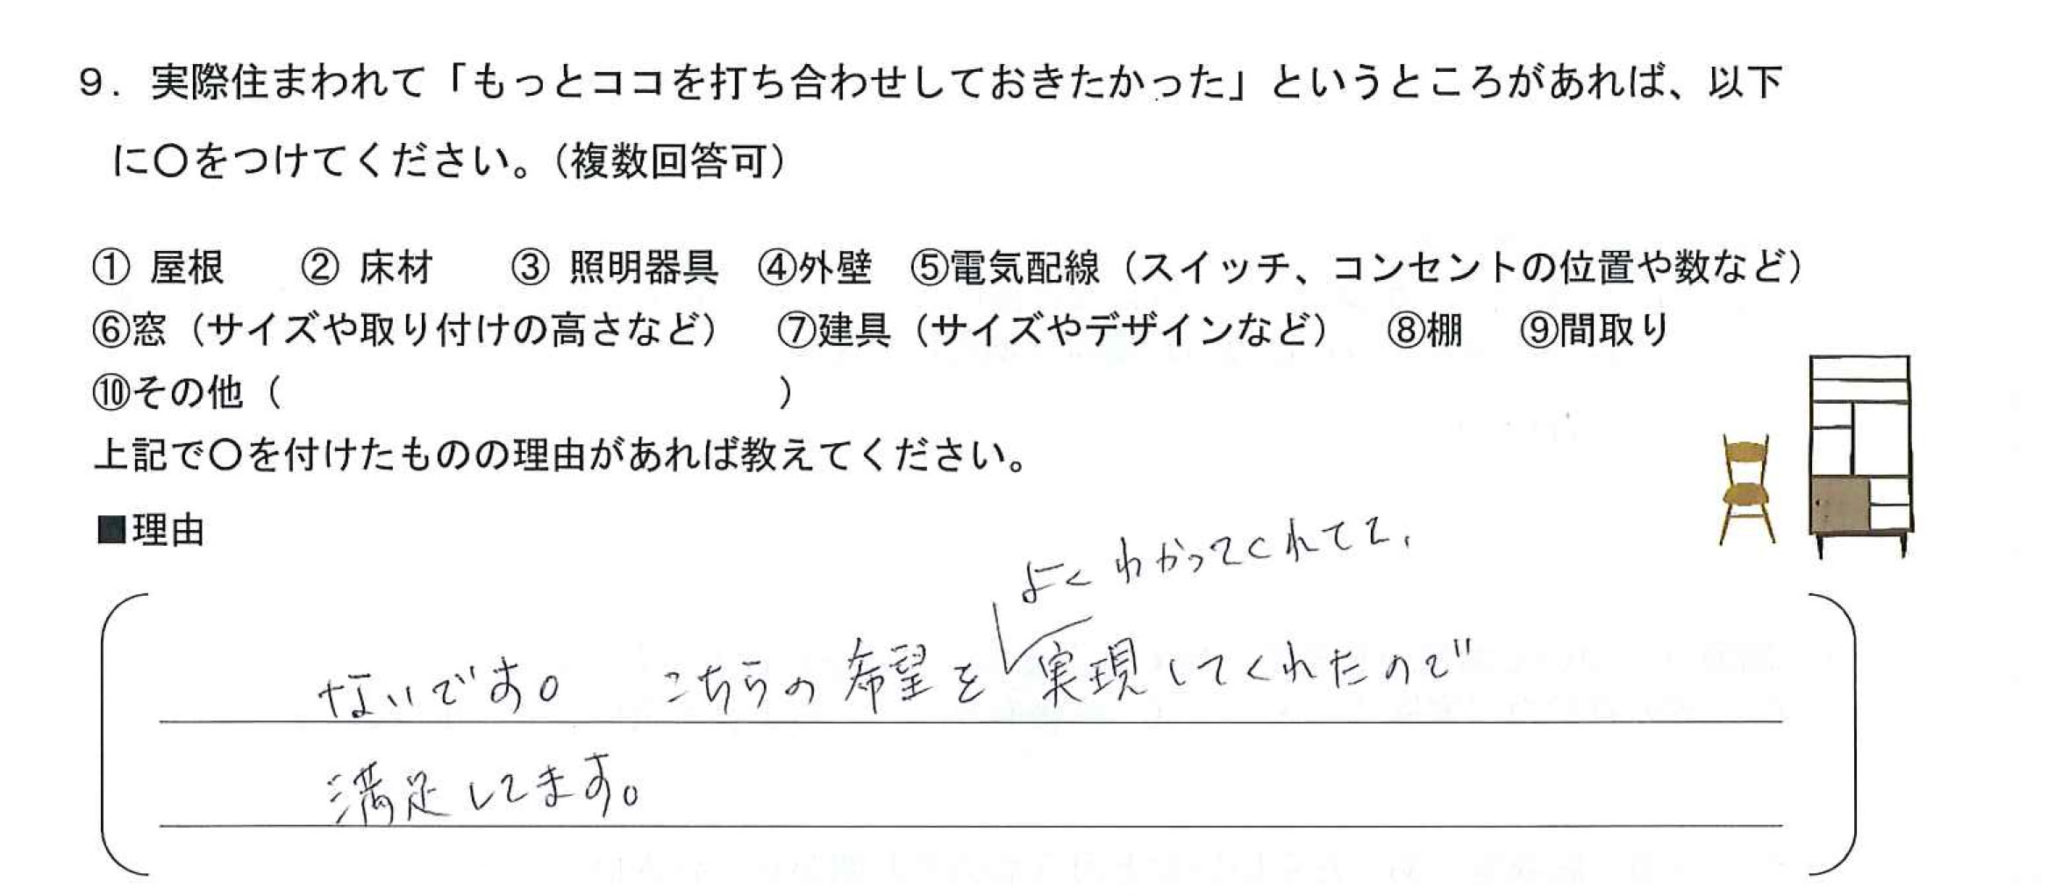 ９．実際住まわれて「もっとココを打ち合わせしておきたかった」というところがあれば、以下
に〇をつけてください。（複数回答可）
① 屋根　② 床材　③ 照明器具　④外壁　⑤電気配線（スイッチ、コンセントの位置や数など）
⑥窓（サイズや取り付けの高さなど）　⑦建具（サイズやデザインなど）　⑧棚　⑨間取り
⑩その他（　　　　　　　　　　　　　）
上記で〇を付けたものの理由があれば教えてください。
■理由
よくわかってくれてて、
ないです。　こちらの希望を実現してくれたので
満足してます。